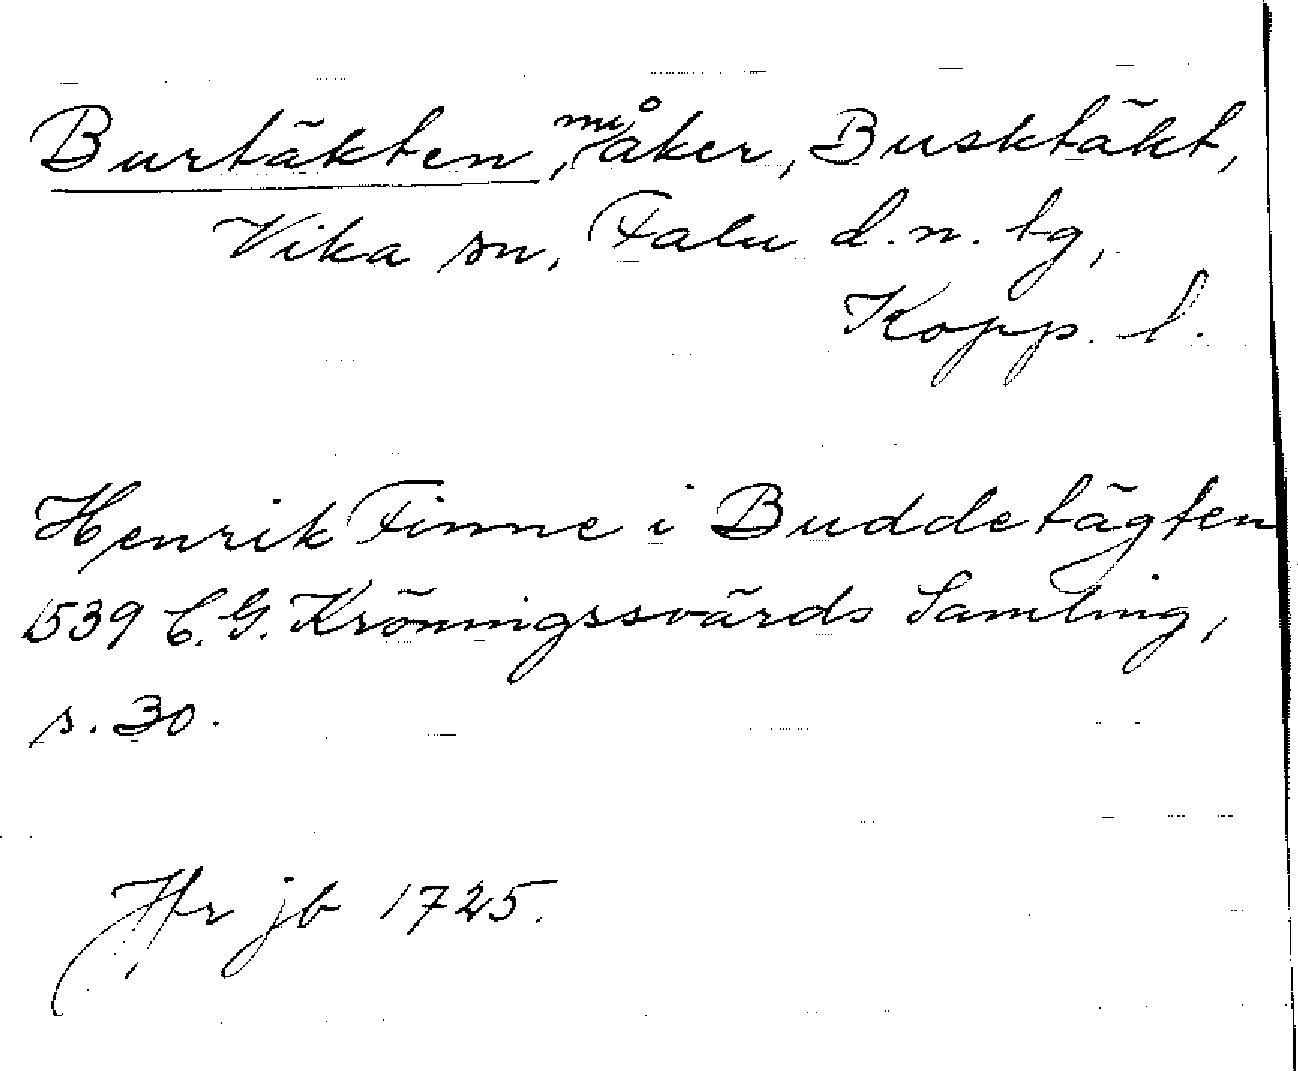 Burtäkten, nu åker, Busktäkt,
Vika sn, Falu d.n. lg,
Kopp. l.
Henrik Finne i Buddetägten
1539 C.G. Kröningssvärds Samling,
s. 30.
Jfr jb 1725.